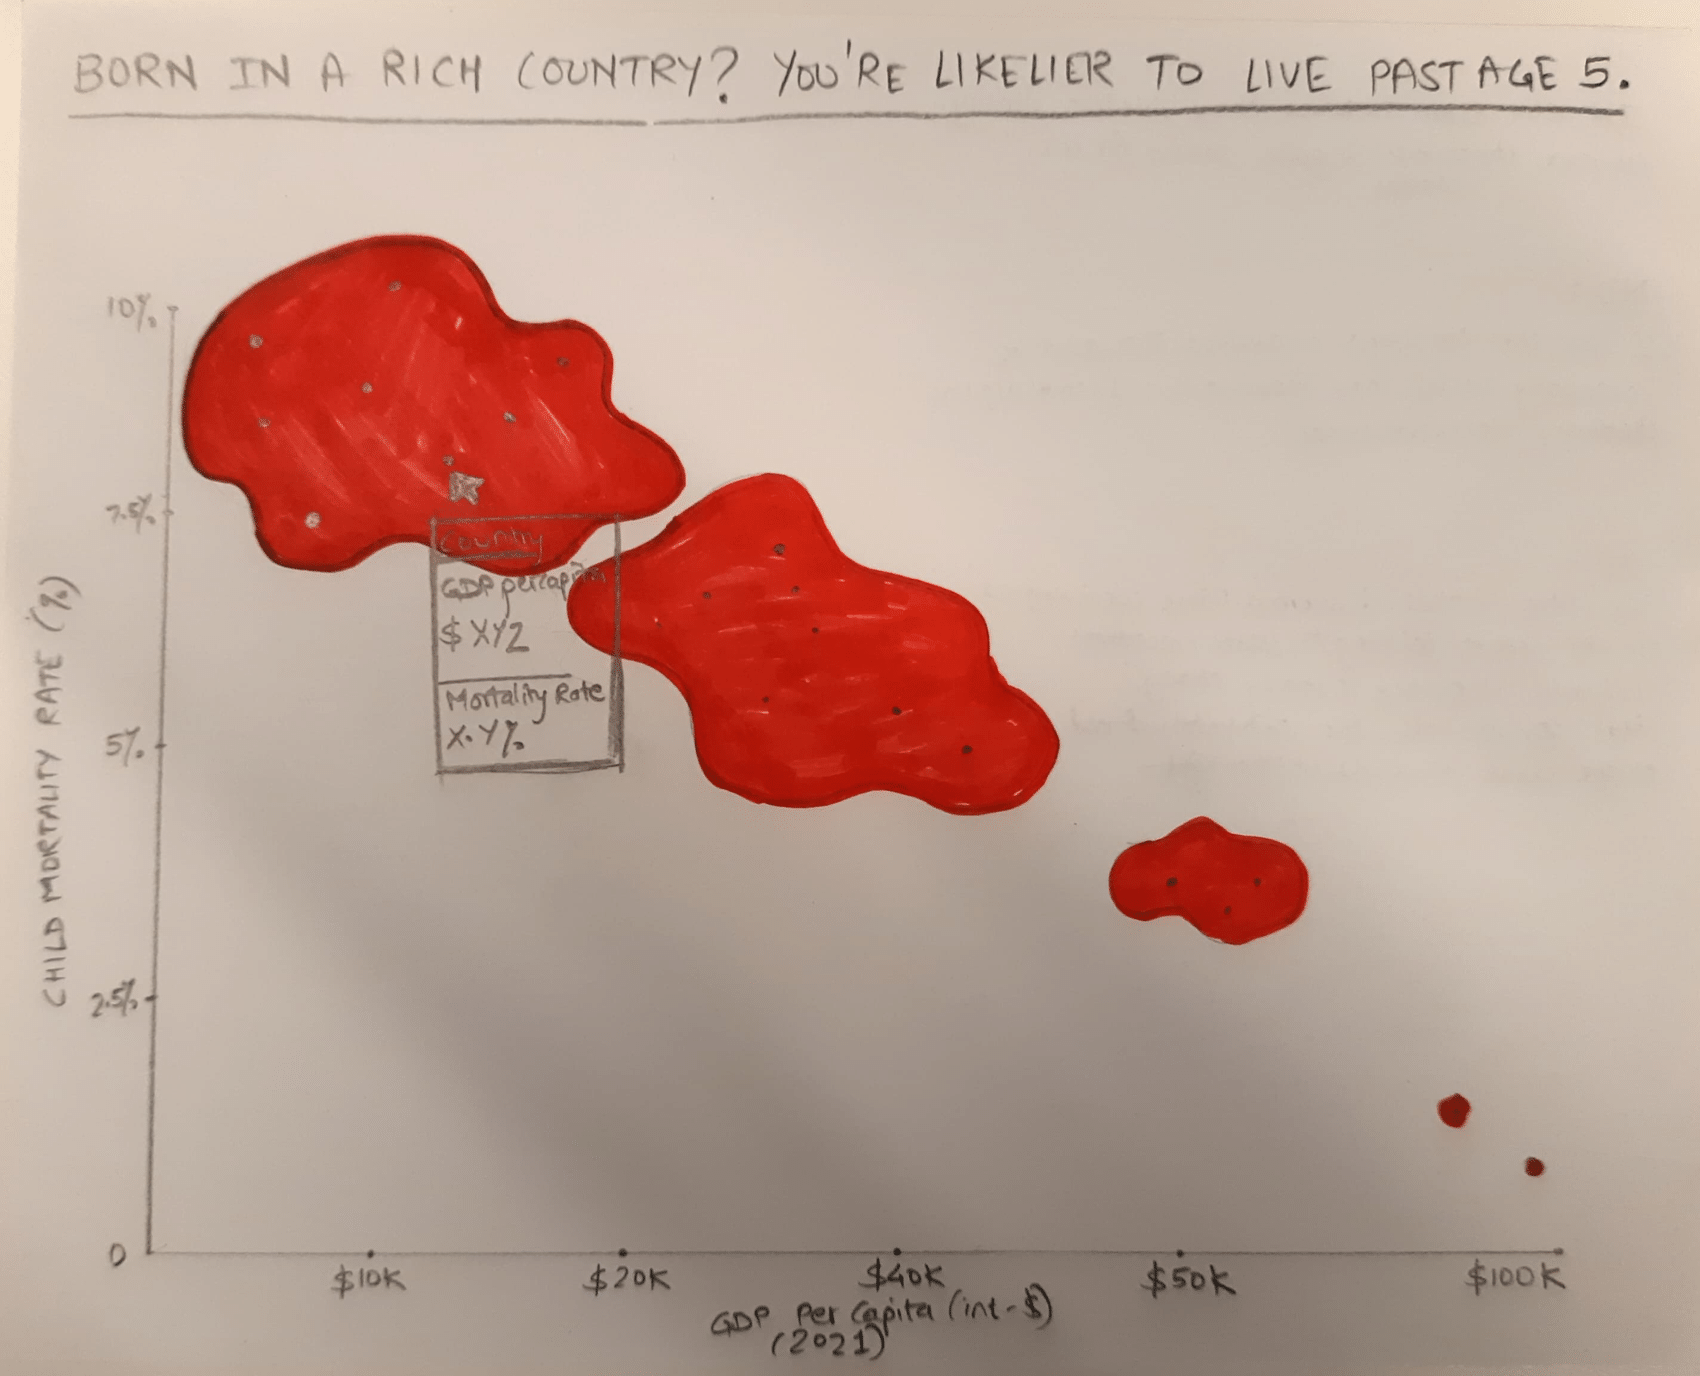 BORN IN A RICH COUNTRY? YOU'RE LIKELIER TO LIVE PAST AGE 5.
CHILD MORTALITY RATE (%)
10%
7.5%
5%
2.5%
0
Country
GDP per capita
$ XYZ
Mortality Rate
X.Y%
$10K
$20K
$40K
$50K
$100K
GDP Per Capita (int-$)
(2021)